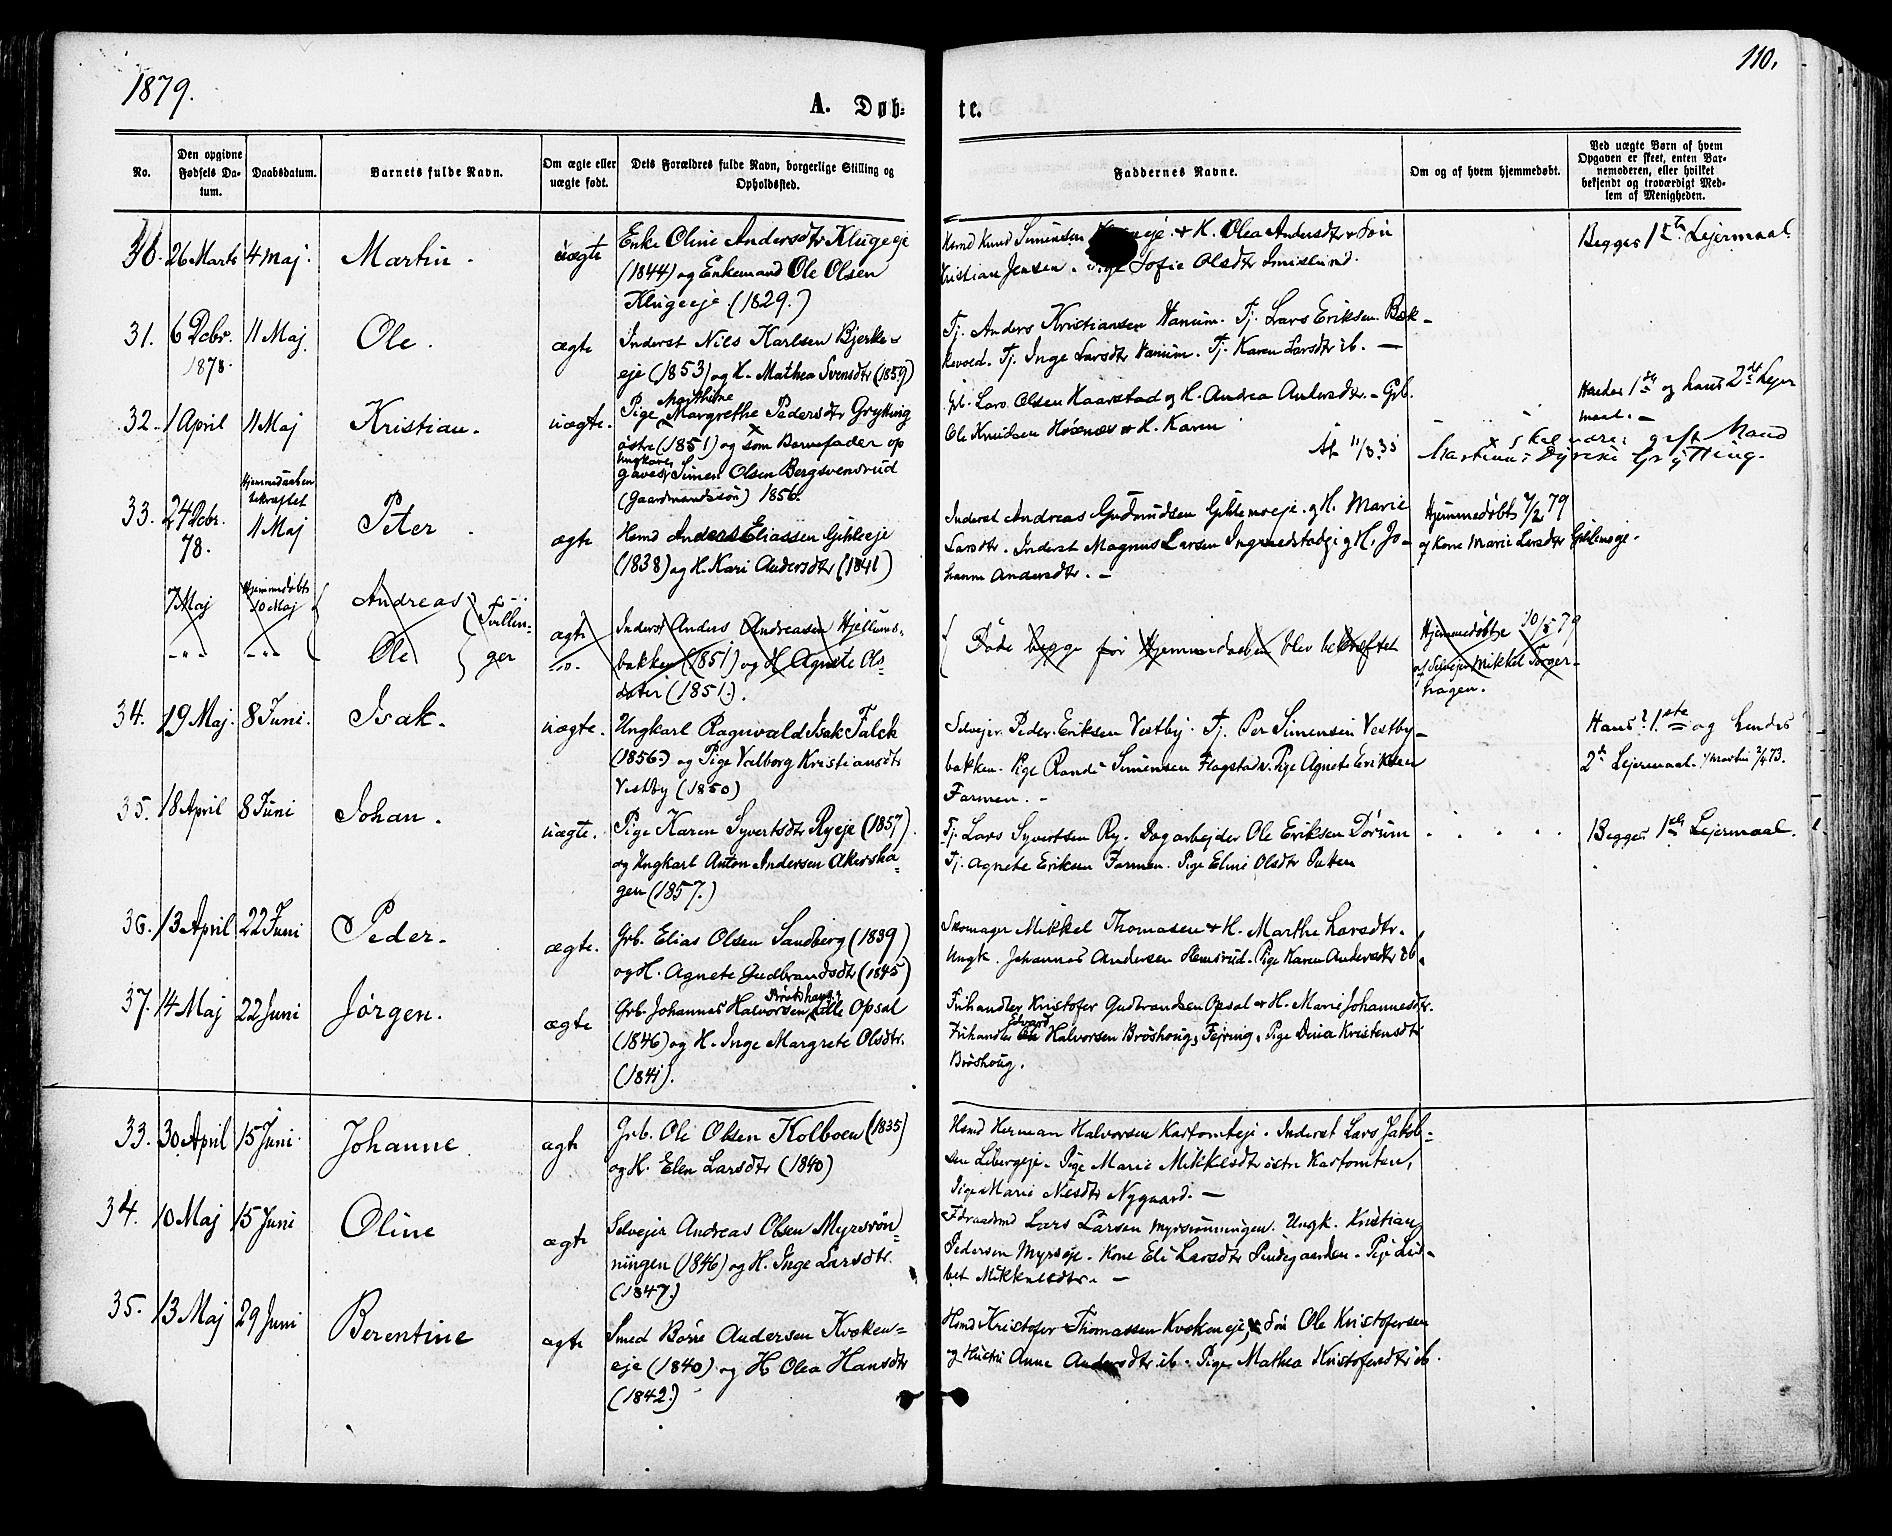 1879.
110.
A. Døb-
te.
No.
Den opgivne Fødsels Datum.
Daabsdatum.
Barnets fulde Navn.
Om ægte eller uægte født.
Dets Forældres fulde Navn, borgerlige Stilling og Opholdssted.
Faddernes Navne.
Om og af hvem hjemmedøbt.
Ved uægte Børn af hvem Opgaven er skeet, enten Barnemoderen, eller hvilket bekjendt og troværdigt Medlem af Menigheden.
30. 26 Marts 4 Maj. Martin. uægte
Enke Oline Andersdtr Klugeeje
(1844) og Enkemand Ole Olsen
Klugeeje (1829.)
Hsmd Knud Simensen eje. & H. Olea Andersdtr & Søn
Kristian Jensen. Pige Sofie Olsdtr
Begges 1ste Lejermaal
31. 6 Decbr. 1878. 11 Maj. Ole. ægte
Inderst Nils Karlsen Bjerke-
eje (1853) og H. Mathea Svensdtr (1859)
Tj. Anders Kristiansen Vanum. Tj. Lars Eriksen Bæk-
kevold. Tj. Inge Larsdtr Vanum. Tj. Karen Larsdtr ib. —
32. 1 April 11 Maj Kristian. uægte.
Marthine
Pige Margrethe Pedersdtr Grytting
østre (1851) og som Barnefader op
ungkarl
gaves Simen Olsen Bergsvensrud
(Gaardmandssøn) 1856.
Grb. Lars Olsen Haarstad og H. Andrea Andersdtr. Grb.
Ole Knudsen & H. Karen
Hendes 1ste og hans 2det Lejer
maal. —
skal være: gift Mand
Martinus Grytting.
33. 24 Decbr. 78. Hjemmedaaben bekræftet 11 Maj Peter. ægte
Hsmd Anders Eliassen Gihleeje
(1838) og H. Kari Andersdtr (1841)
Inderst Andreas Gudmudsen Gihlemoeje. og H. Marie
Larsdtr. Inderst Magnus Larsen og H. Jo-
hanne Andersdtr. —
Hjemmedøbt 79
af Kone Marie Larsdtr Gihlmoeje.
7 Maj Hjemmedøbt 10 Maj Andreas Tvillin-
-"- -"- Ole ger
ægte
Inderst Anders Andreasen Hjellums-
bakken (1851) og H Agnete Ols-
datter (1851.).
Døde begge før Hjemmedaaben blev bekræftet
Hjemmedøbt 10/5 79
af Selvejer Mikkel Torger-
hagen.
34. 19 Maj. 8 Juni. Isak. uægte.
Ungkarl Ragnvald Isak Falck
(1856.) og Pige Valborg Kristiansdtr
Vestby (1850)
Selvejer Peder Eriksen Vestby. Tj. Per Simensen Vestby-
bakken. Pige Randi Simensen Flagstad. Pige Agnete Eriksen
Farmen. -
Hans? 1ste og hendes
2det Lejermaal.
35. 18 April 8 Juni Johan. uægte.
Pige Karen Syvertsdtr Ryeje (1857).
og Ungkarl Anton Andersen Akersha-
gen (1857.)
Tj. Lars Syvertsen Ry. Dagarbejder Ole Eriksen Dørum
Tj. Agnete Eriksen Farmen. Pige Eline Olsdtr Putten
Begges 1ste Lejermaal.
36. 13 April 22 Juni Peder. ægte.
Grb. Elias Olsen Sandberg (1839)
og H. Agnete Gudbrandsdtr (1845)
Skomager Mikkel Thomasen & H. Marthe Larsdtr.
Ungk. Johannes Andersen Pige Karen Andersdtr ib.
37. 14 Maj 22 Juni Jørgen. ægte
Grb. Johannes Halvorsen lille Opsal
(1846) og H. Inge Margrete Olsdtr.
(1841).
Frihandler Kristofer Gudbrandsen Opsal & H. Marie Johannesdtr.
Edvard
Frihandler Halvorsen Brøshoug, Pige Dina Kristensdtr
Brøshoug.
33. 30 April 15 Juni. Johanne ægte
Grb. Ole Olsen Kolboen (1835)
og H. Elen Larsdtr (1840)
Hsmd Herman Halvorsen Karlomteje. Inderst Lars Jakob-
sen Libergeje. Pige Marie Mikkelsdtr østre
Pige Marie Nilsdtr Nygaard. —
34. 10 Maj 15 Juni Oline ægte
Selvejer Andreas Olsen Myrsrøn-
ningen (1846) og H. Inge Larsdtr.
(1847.)
Føraadsmd Lars Larsen Myrsrønningen. Ungk. Kristian
Pedersen Kone Eli Larsdtr Pige Lis-
bet Mikkelsdtr. —
35. 13 Maj 29 Juni Berentine ægte
Smed Børre Andersen Kvæken-
eje (1840) og H Olea Hansdtr
(1842.)
Hsmd Kristofer Thomassen Kvækeneje, Søn Ole Kristofersen
og Hustru Anne Andersdtr ib. Pige Mathea Kristofersdtr ib.